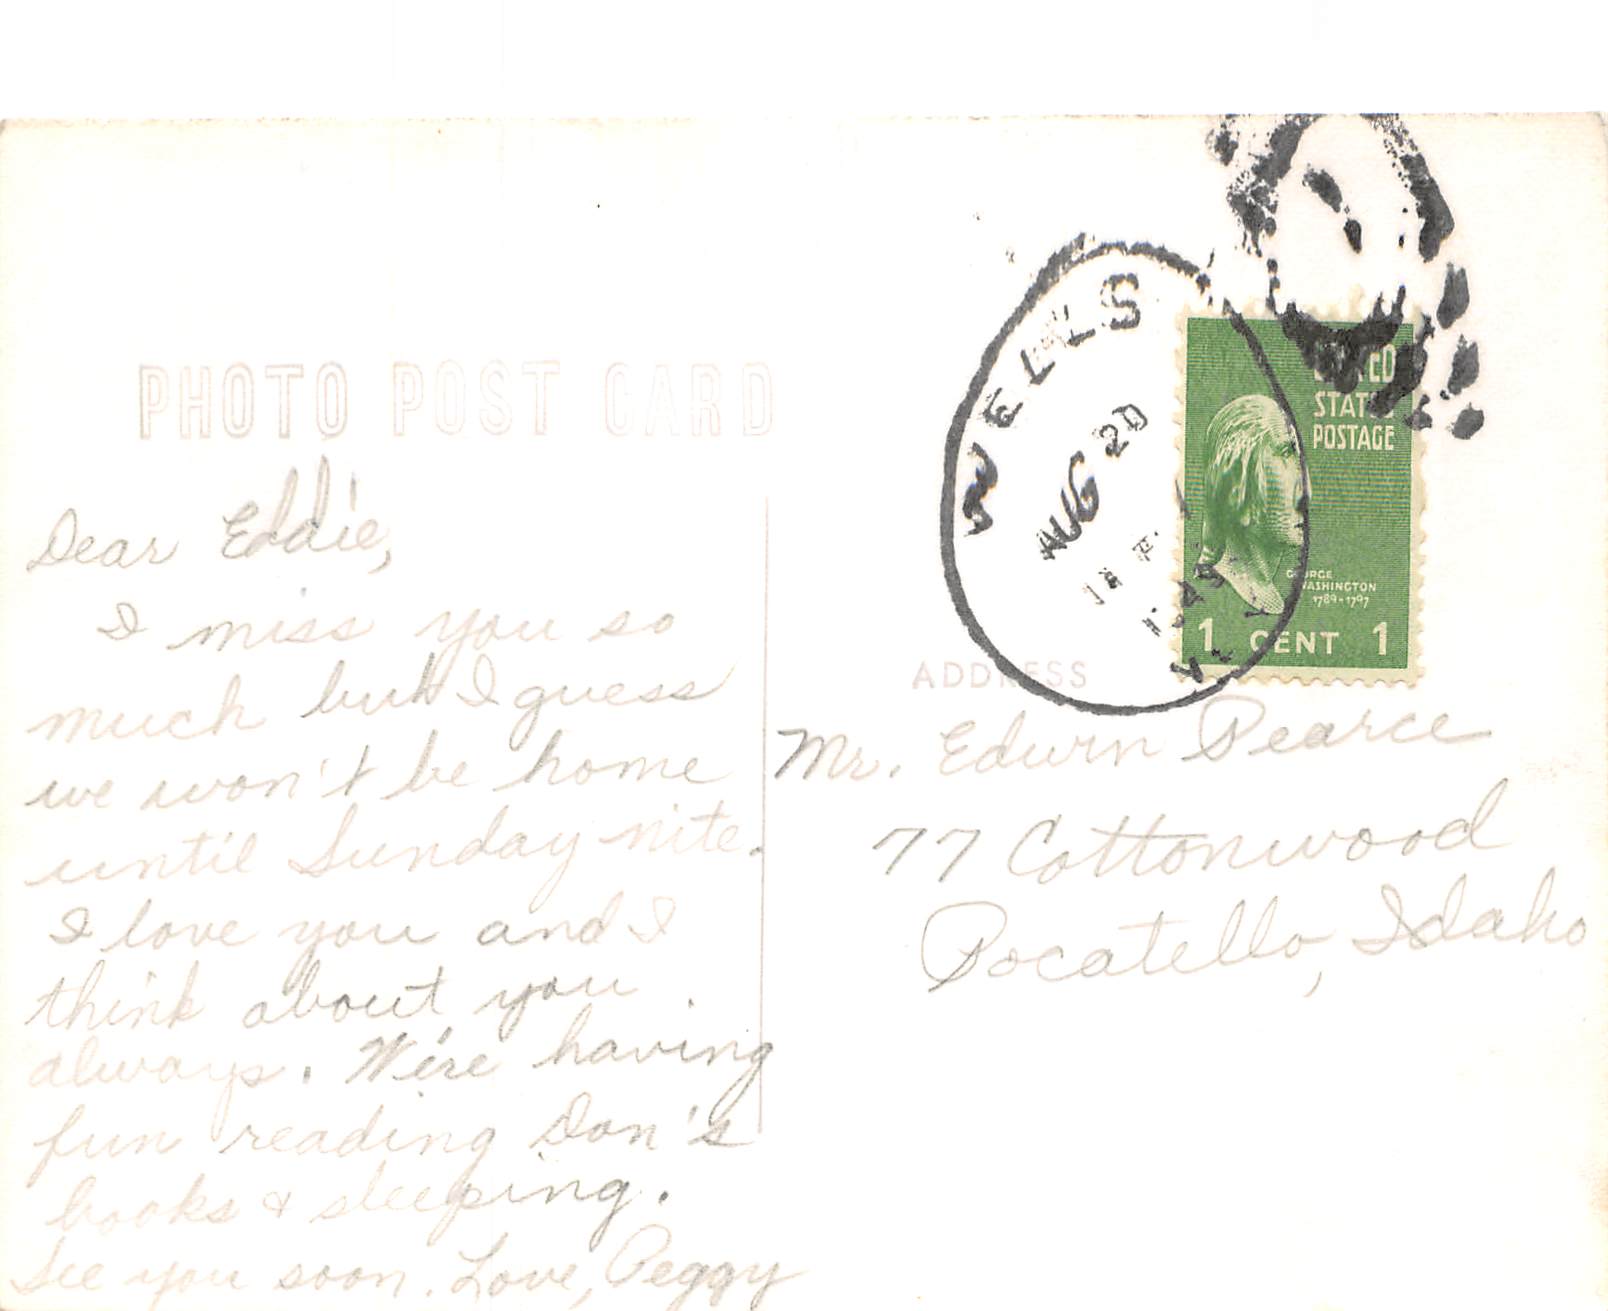 PHOTO POST CARD
Dear Eddie,
I miss you so
much but I guess
we won't be home
until Sunday nite.
I love you and I
think about you
always. We're having
fun reading Don's
books & sleeping.
See you soon. Love, Peggy
WELLS
AUG 20
UNITED
STATES
POSTAGE
GEORGE
WASHINGTON
1789-1797
1 CENT 1
ADDRESS
Mr. Edwin Pearce
77 Cottonwood
Pocatello, Idaho